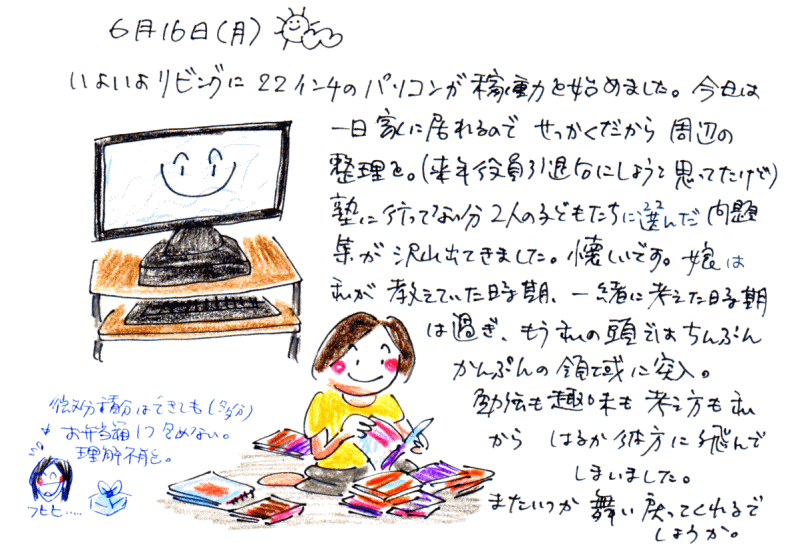 6月16日(月)
いよいよリビングに22インチのパソコンが稼働を始めました。今日は
一日家に居れるので せっかくだから 周辺の
整理を。(来年役員引退後にしようと思ってたけど)
塾に行ってない分2人の子どもたちに選んだ問題
集が沢山出てきました。懐しいです。娘は
私が教えていた時期、一緒に考えた時期
は過ぎ、もう私の頭ではちんぷん
かんぷんの領域に突入。
勉強も趣味も考え方も私
から はるか彼方に飛んで
しまいました。
またいつか舞い戻ってくれるで
しょうか。
微分積分はできても(多分)
お弁当箱1つ包めない。
理解不能。
フヒヒ……